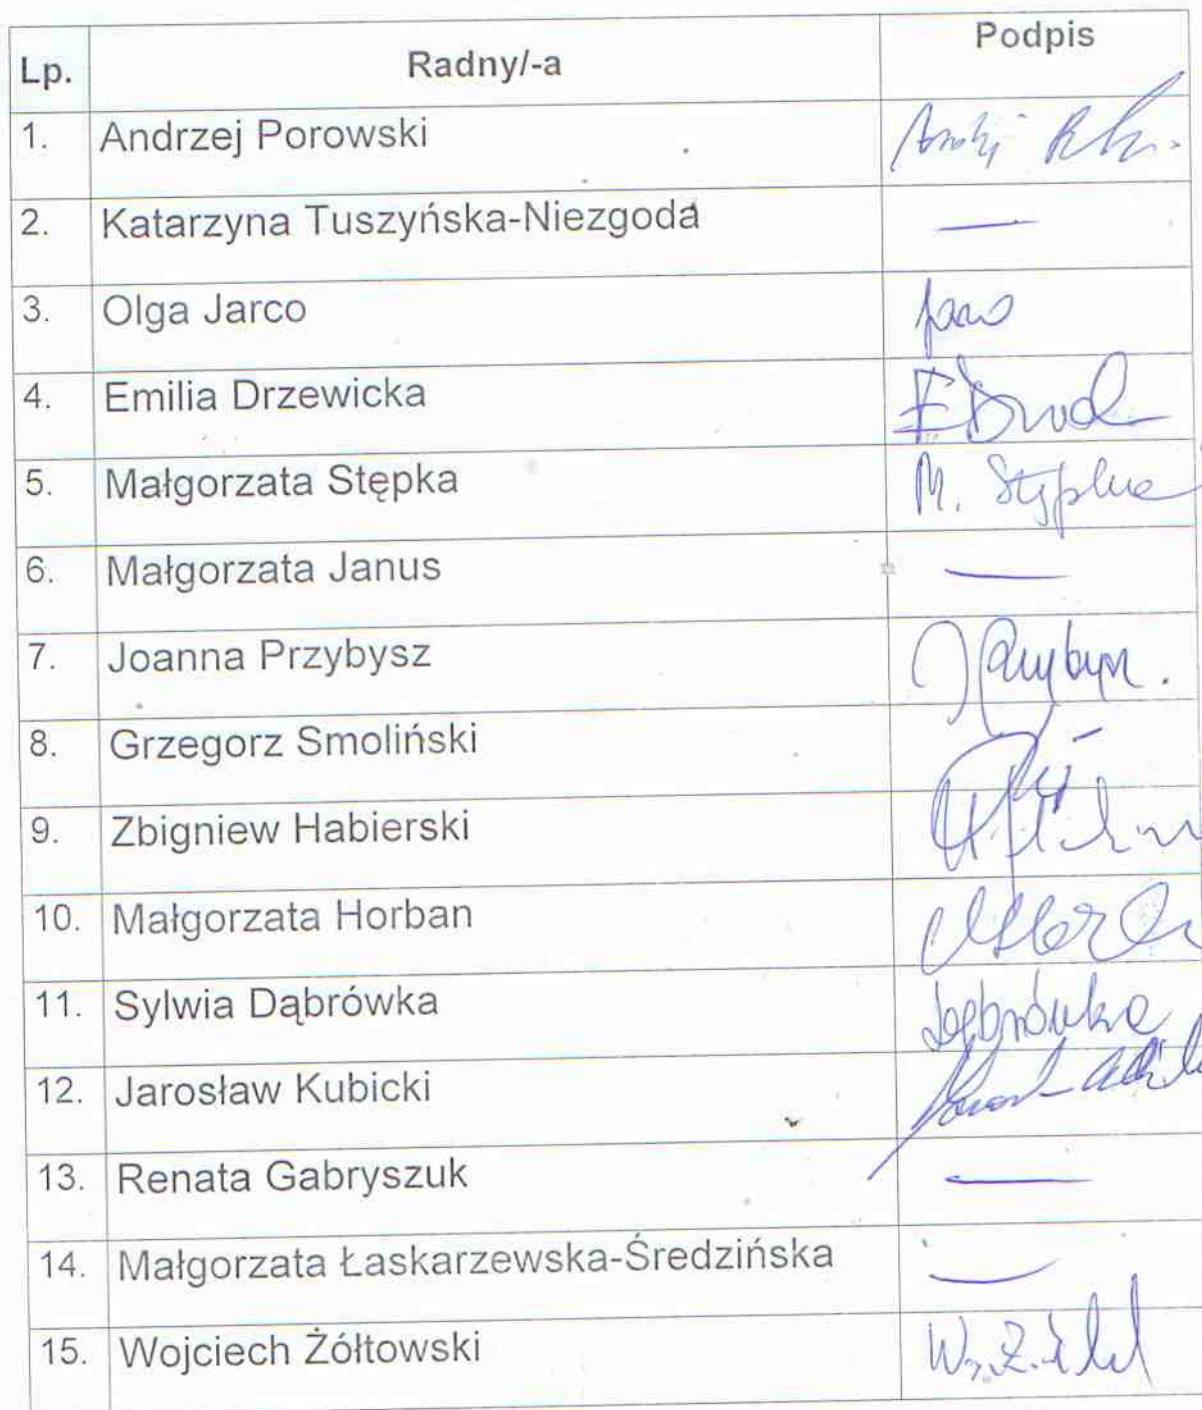 Lp. Radny/-a Podpis
1. Andrzej Porowski
2. Katarzyna Tuszyńska-Niezgoda —
3. Olga Jarco
4. Emilia Drzewicka
5. Małgorzata Stępka M. Stępka
6. Małgorzata Janus —
7. Joanna Przybysz J Przybysz.
8. Grzegorz Smoliński
9. Zbigniew Habierski
10. Małgorzata Horban
11. Sylwia Dąbrówka Dąbrówka
12. Jarosław Kubicki
13. Renata Gabryszuk —
14. Małgorzata Łaskarzewska-Średzińska —
15. Wojciech Żółtowski